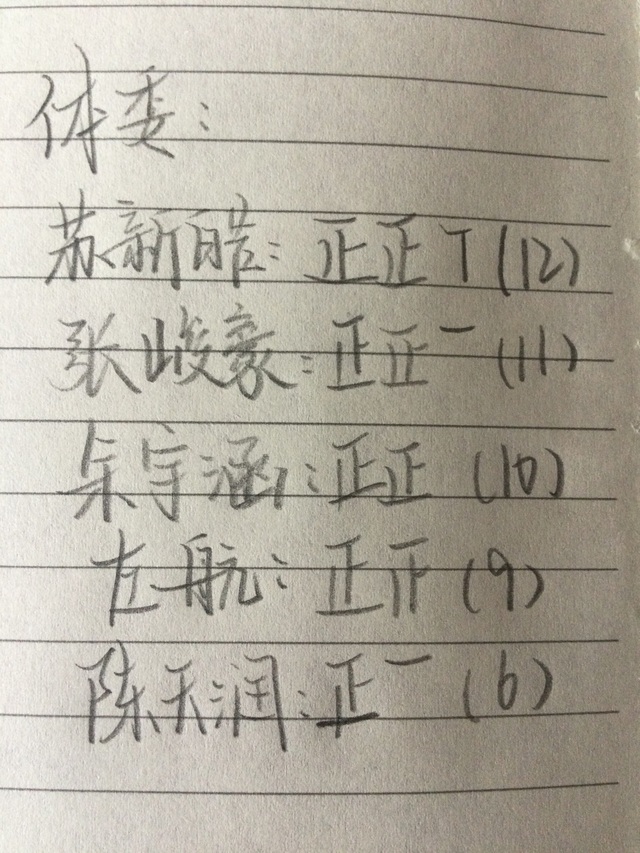 体委：
苏新皓：正正丅(12)
张峻豪：正正一(11)
朱宇涵：正正(10)
左航：正正(9)
陈天润：正一(6)